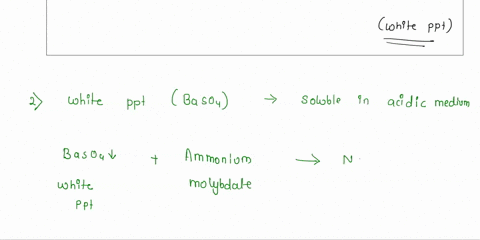 (white ppt)
2) white ppt (BaSO4) → soluble in acidic medium
BaSO4↓ + Ammonium molybdate → N
white ppt